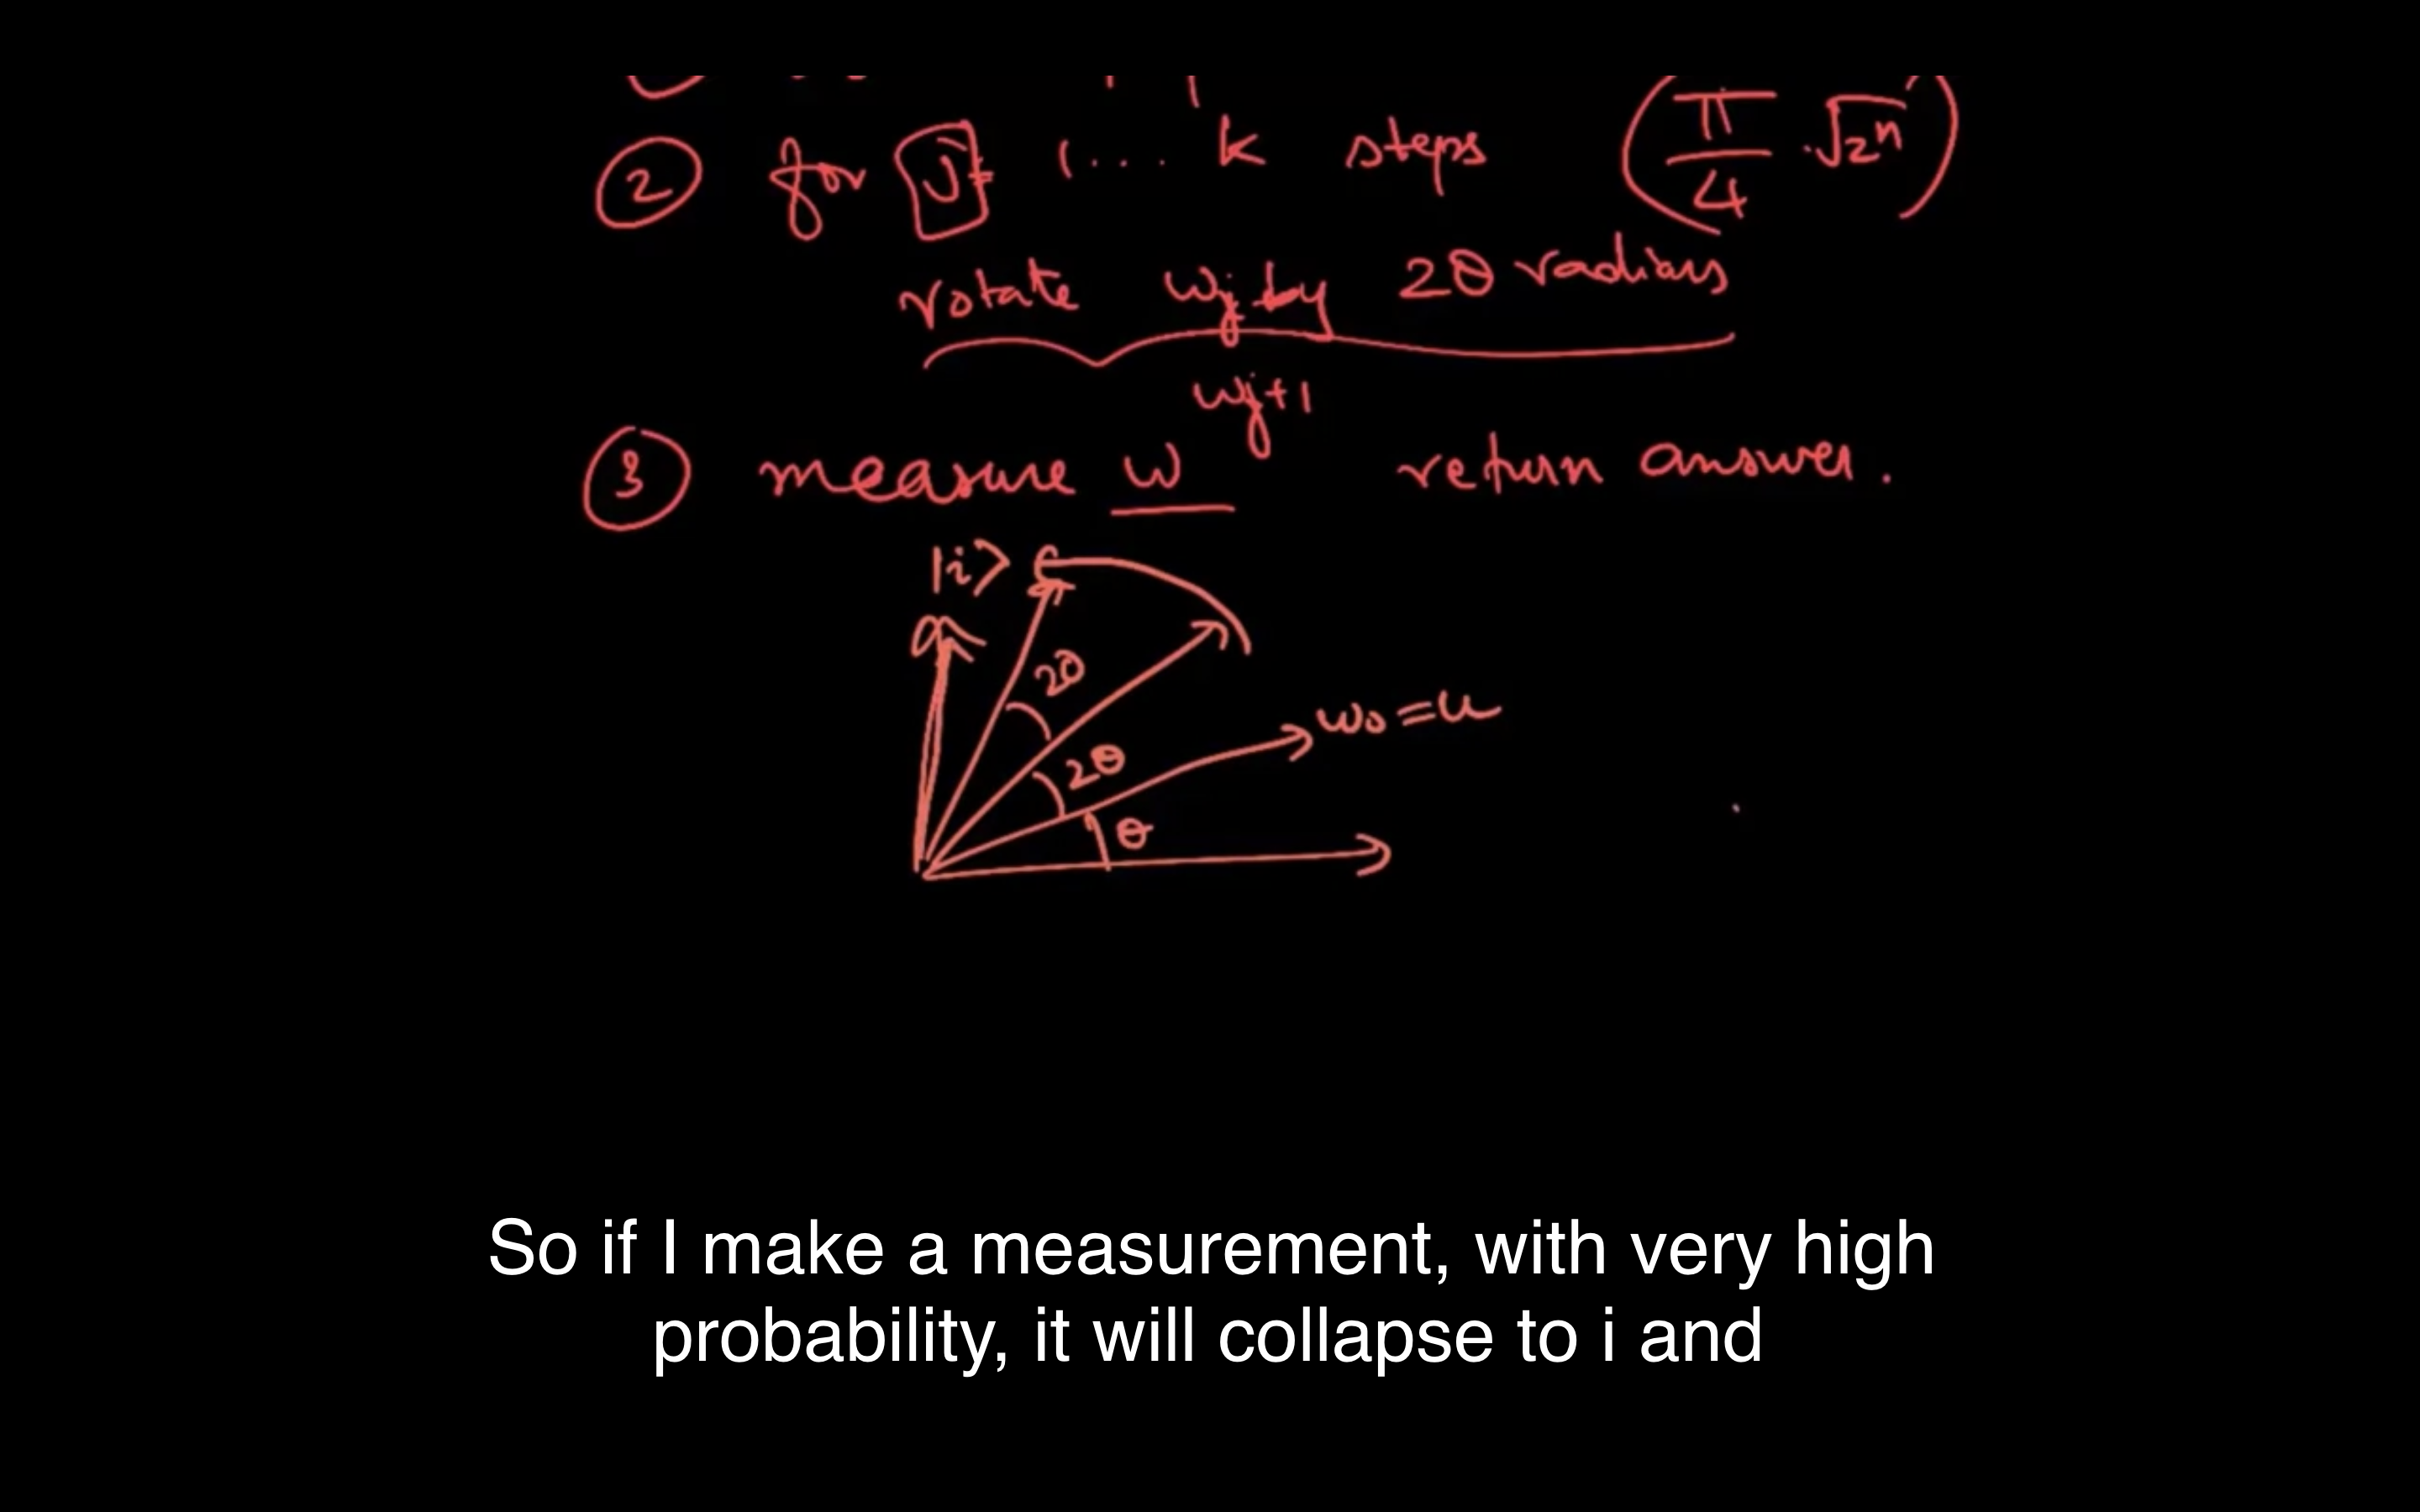 ② for j = 1 ... k steps (π/4 · √2ⁿ)
rotate wj by 2θ radians
wj+1
③ measure w return answer.
|i⟩
2θ
w₀ = u
2θ
θ
So if I make a measurement, with very high
probability, it will collapse to i and